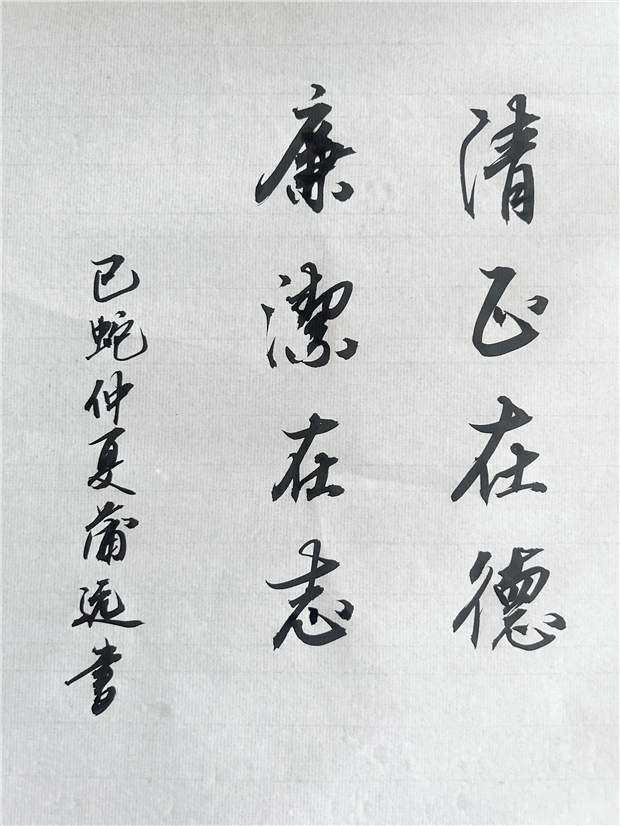 清正在德
廉潔在志
已蛇仲夏蒲远書